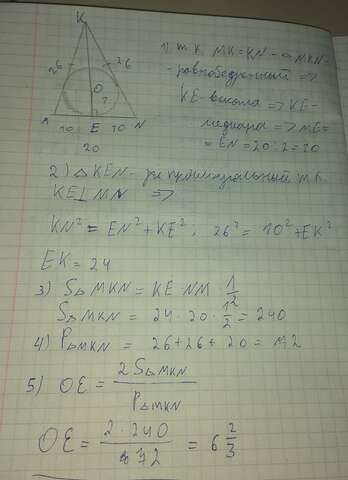 K
26 26
O
?
10 E 10 N
20
1) т.к. MK=KN → △MKN-
- равнобедренный =>
KE-высота => KE-
медиана => ME=
= EN = 20:2=10
2) △KEN- прямоугольный т.к.
KE⊥MN =>
KN² = EN² + KE² ; 26² = 10² + EK²
EK = 24
3) S△MKN = KE · NM · 1/2
S△MKN = 24 · 20 · 1/2 = 240
4) P△MKN = 26+26+20 = 72
5) OE = 2S△MKN / P△MKN
OE = 2 · 240 / 72 = 6 2/3